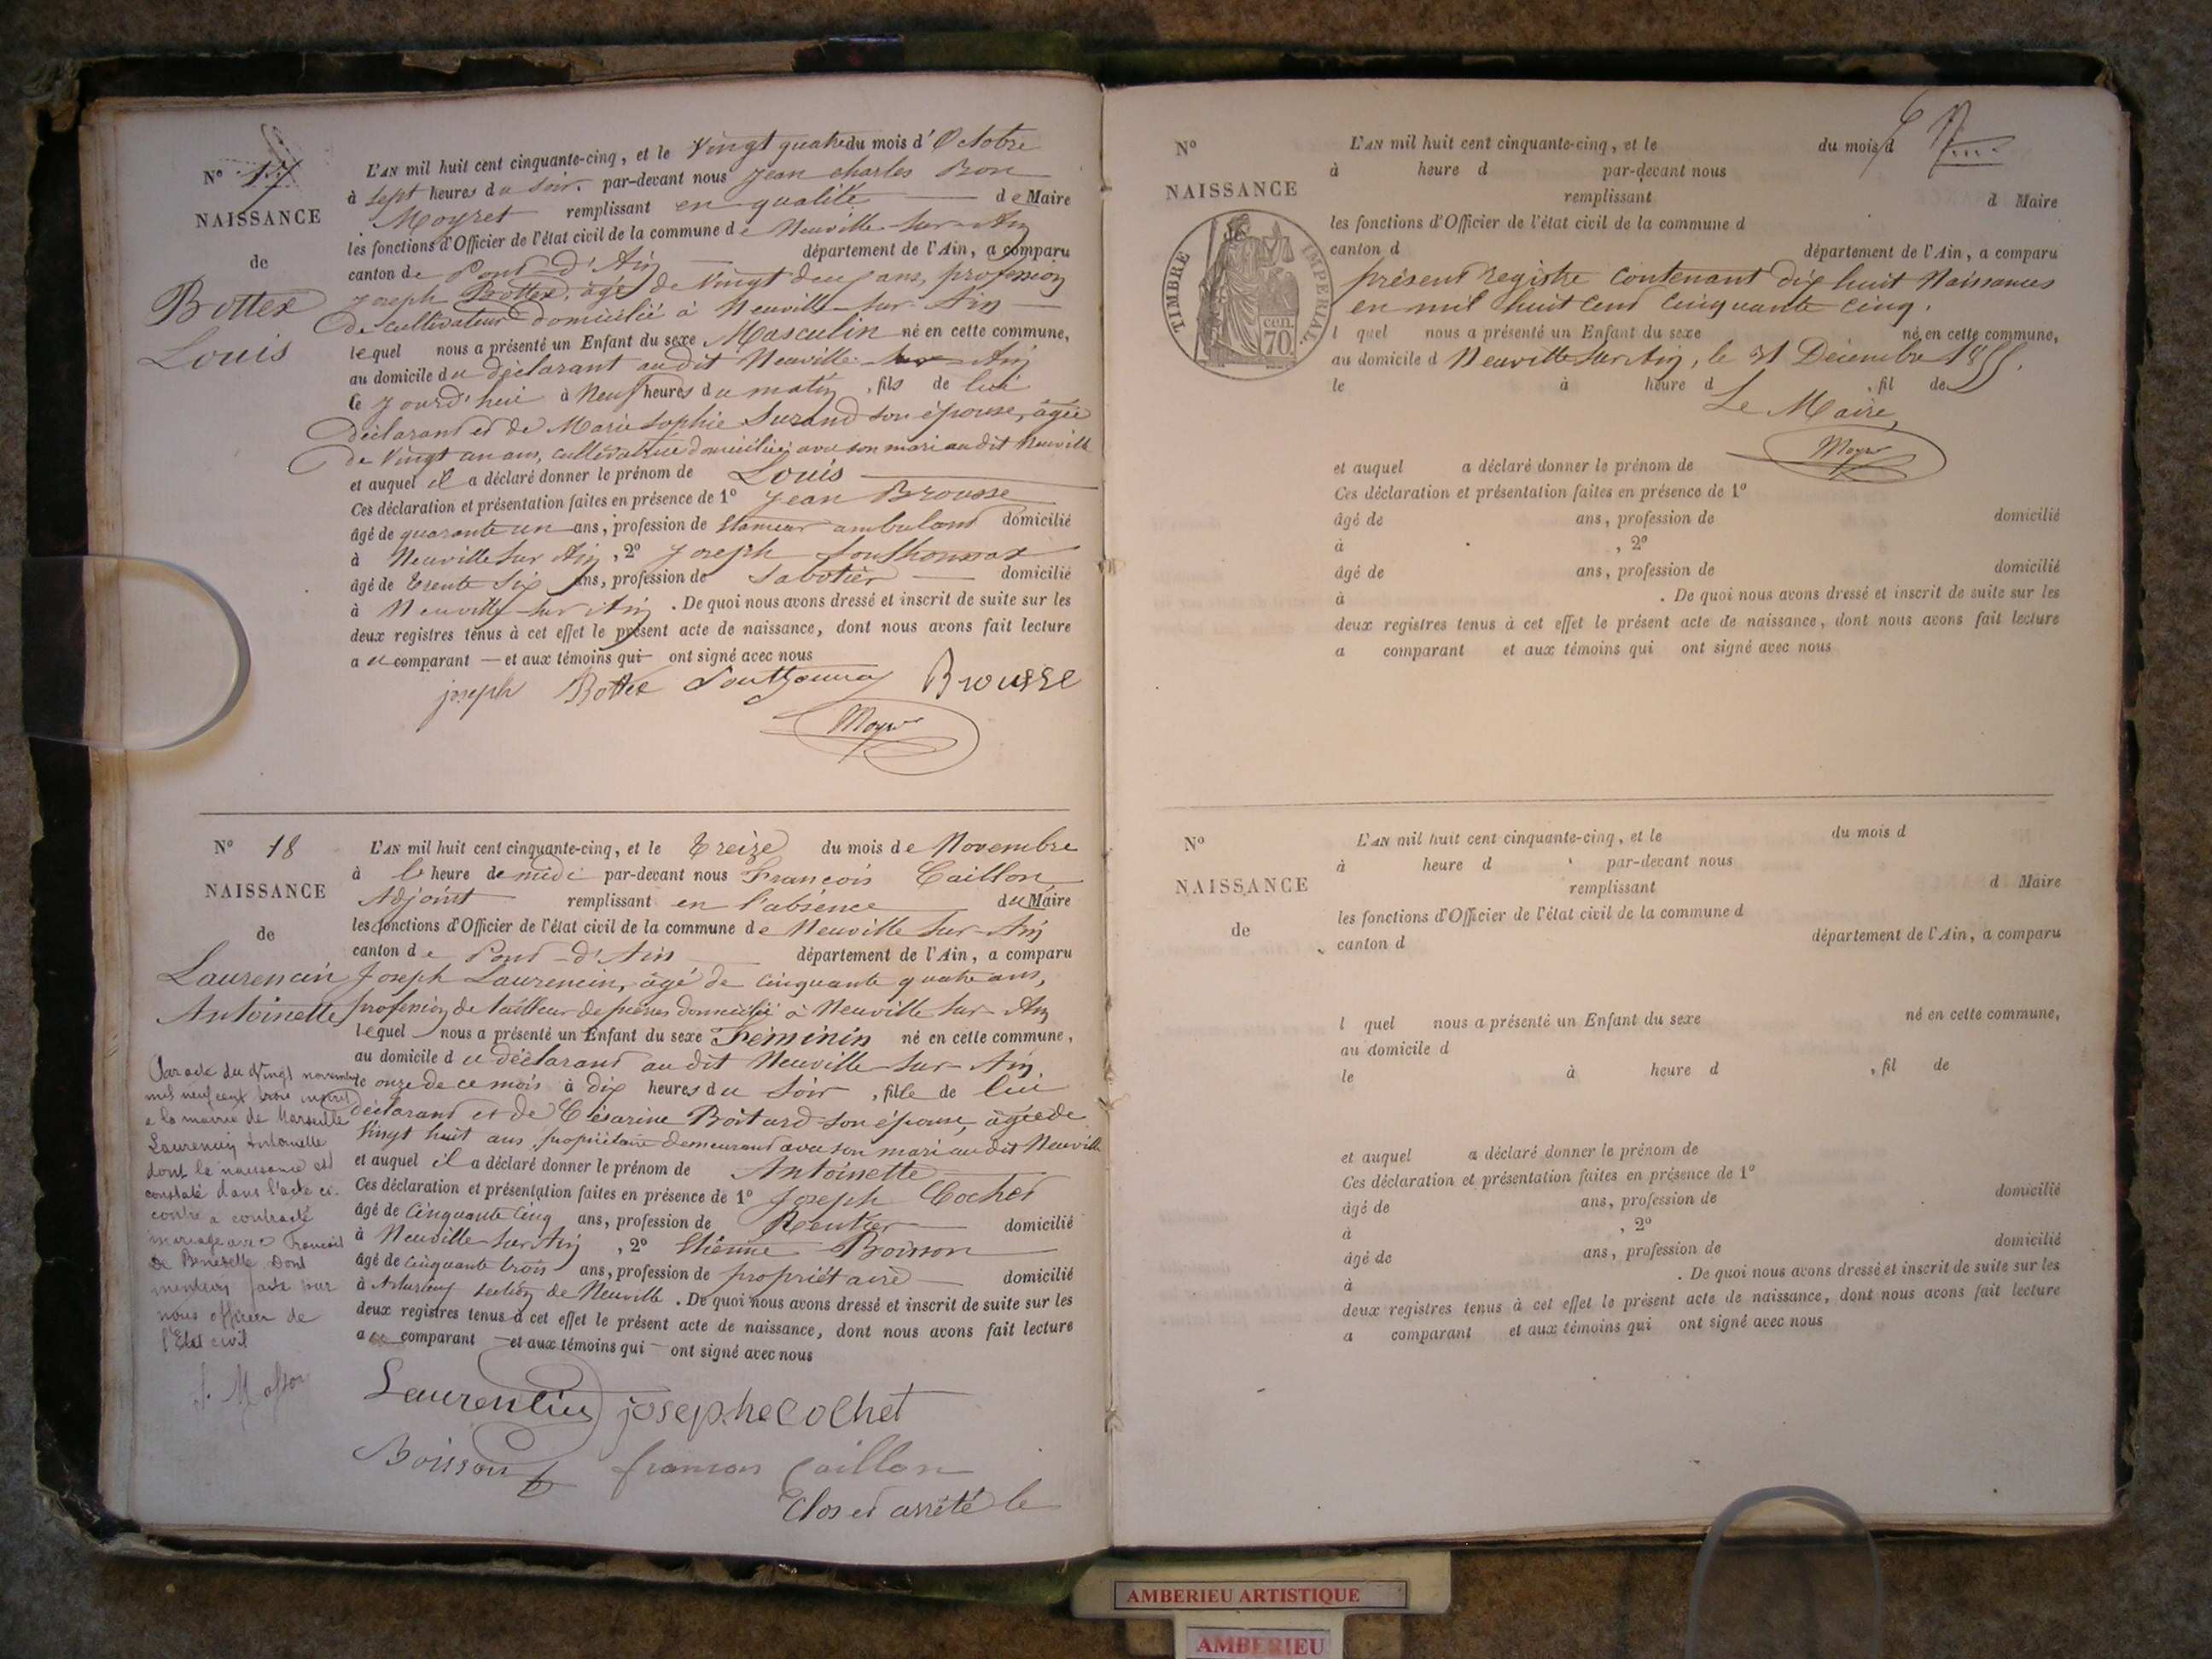 N° 17
NAISSANCE
de
Bottex
Louis
L'AN mil huit cent cinquante-cinq, et le Vingt quatre du mois d'Octobre
à Sept heures du Soir. par-devant nous Jean charles Bon
Moyret remplissant en qualité de Maire
les fonctions d'Officier de l'état civil de la commune de Neuville sur Ain
canton de Pont d'Ain département de l'Ain, a comparu
Joseph Bottex, âgé de Vingt deux ans, profession
de cultivateur domicilié à Neuville sur Ain
lequel nous a présenté un Enfant du sexe Masculin né en cette commune,
au domicile du déclarant audit Neuville sur Ain
Ce jourd'hui à Neuf heures du matin, fils de lui
déclarant et de Marie Sophie Suzand son épouse, âgée
de Vingt un ans, cultivatrice domiciliée avec son mari audit Neuville
et auquel il a déclaré donner le prénom de Louis
Ces déclaration et présentation faites en présence de 1° Jean Brousse
âgé de quarante un ans, profession de étameur ambulant domicilié
à Neuville sur Ain, 2° Joseph Southonnax
âgé de trente Six ans, profession de Sabotier domicilié
à Neuville sur Ain. De quoi nous avons dressé et inscrit de suite sur les
deux registres tenus à cet effet le présent acte de naissance, dont nous avons fait lecture
au comparant et aux témoins qui ont signé avec nous
joseph Bottex Southonnax Brousse
Moyret
N° 18
NAISSANCE
de
Laurencin
Antoinette
L'AN mil huit cent cinquante-cinq, et le Treize du mois de Novembre
à l' heure de midi par-devant nous François Caillon
Adjoint remplissant en l'absence du Maire
les fonctions d'Officier de l'état civil de la commune de Neuville sur Ain
canton de Pont d'Ain département de l'Ain, a comparu
Joseph Laurencin, âgé de Cinquante quatre ans,
profession de tailleur de pierres domicilié à Neuville sur Ain
lequel nous a présenté un Enfant du sexe Féminin né en cette commune,
au domicile du déclarant au dit Neuville sur Ain
le onze de ce mois à dix heures du Soir, fille de lui
déclarant et de Césarine Boitard son épouse, âgée de
Vingt huit ans, propriétaire demeurant avec son mari au dit Neuville
et auquel il a déclaré donner le prénom de Antoinette
Ces déclaration et présentation faites en présence de 1° Joseph Cochet
âgé de Cinquante Cinq ans, profession de Rentier domicilié
à Neuville sur Ain, 2° Etienne Boisson
âgé de cinquante trois ans, profession de propriétaire domicilié
à section de Neuville. De quoi nous avons dressé et inscrit de suite sur les
deux registres tenus à cet effet le présent acte de naissance, dont nous avons fait lecture
au comparant et aux témoins qui ont signé avec nous
Par acte du Vingt novembre
mil neuf cent trois inscrit
a la mairie de Marseille
Laurencin Antoinette
dont la naissance est
constaté dans l'acte ci-
contre a contracté
mariage avec François
de Benedette Dont
mention faite par
nous officier de
l'Etat civil
Laurencin joseph Cochet
Boisson françois Caillon
Clos et arrêté le
N°
NAISSANCE
TIMBRE IMPERIAL
70 cen.
L'AN mil huit cent cinquante-cinq, et le du mois d
à heure d par-devant nous
remplissant d Maire
les fonctions d'Officier de l'état civil de la commune d
canton d département de l'Ain, a comparu
présent registre contenant dix huit Naissances
en mil huit cent cinquante cinq.
l quel nous a présenté un Enfant du sexe né en cette commune,
au domicile d Neuville sur Ain, le 31 Décembre 1855.
le à heure d , fil de
Le Maire,
Moyret
et auquel a déclaré donner le prénom de
Ces déclaration et présentation faites en présence de 1°
âgé de ans, profession de domicilié
à , 2°
âgé de ans, profession de domicilié
à . De quoi nous avons dressé et inscrit de suite sur les
deux registres tenus à cet effet le présent acte de naissance, dont nous avons fait lecture
a comparant et aux témoins qui ont signé avec nous
N°
NAISSANCE
de
L'AN mil huit cent cinquante-cinq, et le du mois d
à heure d par-devant nous
remplissant d Maire
les fonctions d'Officier de l'état civil de la commune d
canton d département de l'Ain, a comparu
l quel nous a présenté un Enfant du sexe né en cette commune,
au domicile d
le à heure d , fil de
et auquel a déclaré donner le prénom de
Ces déclaration et présentation faites en présence de 1°
âgé de ans, profession de domicilié
à , 2°
âgé de ans, profession de domicilié
à . De quoi nous avons dressé et inscrit de suite sur les
deux registres tenus à cet effet le présent acte de naissance, dont nous avons fait lecture
a comparant et aux témoins qui ont signé avec nous
AMBERIEU ARTISTIQUE
AMBERIEU